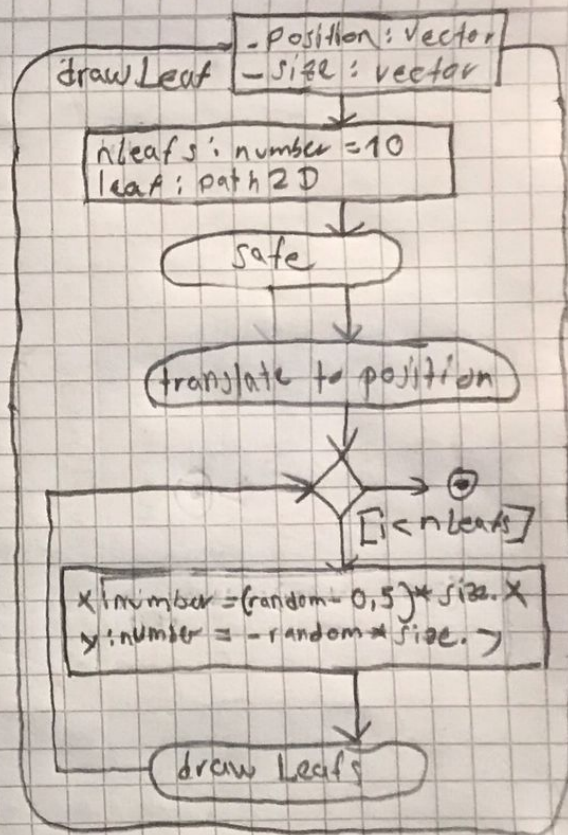 drawLeaf
- position : vector
- size : vector
nLeafs : number = 10
leaf : path 2D
safe
translate to position
[i < nLeafs]
x : number = (random - 0,5) * size. x
y : number = - random * size. y
draw Leafs